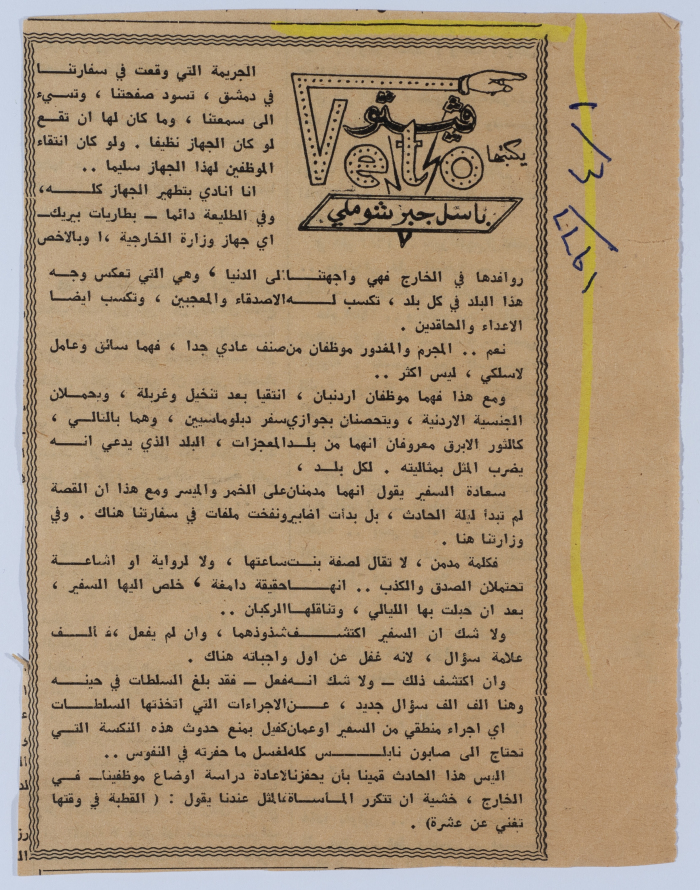 فيتو
Veto
يكتبها
باسل جبر شوملي
١/٣/١٩٧٧
الجريمة التي وقعت في سفارتنـــا
في دمشق ، تسود صفحتنا ، وتسيء
الى سمعتنا ، وما كان لها ان تقــع
لو كان الجهاز نظيفا . ولو كان انتقاء
الموظفين لهذا الجهاز سليما ..
انا انادي بتطهير الجهاز كلـــه،
وفي الطليعة دائما ــ بطاريات بيريك ــ
اي جهاز وزارة الخارجية ،ا وبالاخص
روافدها في الخارج فهي واجهتنـــاالى الدنيا ، وهي التي تعكس وجــه
هذا البلد في كل بلد ، تكسب لـــهالاصدقاء والمعجبين ، وتكسب ايضـا
الاعداء والحاقدين .
نعم .. المجرم والمغدور موظفان منصنف عادي جدا ، فهما سائق وعامل
لاسلكي ، ليس اكثر ..
ومع هذا فهما موظفان اردنيان ، انتقيا بعد تنخيل وغربلة ، ويحمــلان
الجنسية الاردنية ، ويتحصنان بجوازيسفر دبلوماسيين ، وهما بالتالـي ،
كالثور الابرق معروفان انهما من بلــدالمعجزات ، البلد الذي يدعي انــه
يضرب المثل بمثاليته . لكل بلــد ،
سعادة السفير يقول انهما مدمنانعلى الخمر والميسر ومع هذا ان القصة
لم تبدأ ليلة الحادث ، بل بدأت اضابيرونفخت ملفات في سفارتنا هناك . وفي
وزارتنا هنا .
فكلمة مدمن ، لا تقال لصفة بنــتساعتها ، ولا لرواية او اشاعـــة
تحتملان الصدق والكذب .. انهـــاحقيقة دامغة ، خلص اليها السفير ،
بعد ان حبلت بها الليالي ، وتناقلهـاالركبان ..
ولا شك ان السفير اكتشـــفشذوذهما ، وان لم يفعل ،فـ ألــف
علامة سؤال ، لانه غفل عن اول واجباته هناك .
وان اكتشف ذلك ــ ولا شك انــهفعل ــ فقد بلغ السلطات في حينــه
وهنا الف الف سؤال جديد ، عــنالاجراءات التي اتخذتها السلطــات
اي اجراء منطقي من السفير اوعمانكفيل بمنع حدوث هذه النكسة التــي
تحتاج الى صابون نابلـــس كلهلغسل ما حفرته في النفوس ..
اليس هذا الحادث قمينا بأن يحفزنالاعادة دراسة اوضاع موظفينا ــ فــي
الخارج ، خشية ان تتكرر المــأســاة،فالمثل عندنا يقول : ( القطبة في وقتها
تغني عن عشرة) .